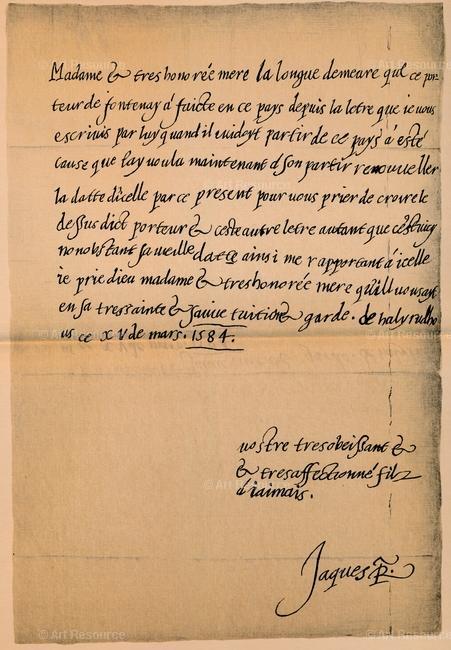 Madame & treshonorée mere la longue demeure que ce por=
teur de fontenay á faicte en ce pays depuis la letre que ie vous
escriuis par luy quand il cuideyt partir de ce pays á esté
cause que iay voulu maintenant á son partir renouueller
la datte dicelle par ce present pour vous prier de croire le
dessus dict porteur & ceste autre letre autant que cestecy
nonobstant sa vieille datte ainsi me rapportant á icelle
ie prie dieu madame & treshonorée mere quil vous ayt
en sa tressainte & sauue tuition & garde. de halyrudho
us ce xv de mars. 1584.
vostre tresobeissant &
& tresaffectionné filz
á iaimais.
Jaques R.
© Art Resource
© Art Resource
© Art Resource
© Art Resource